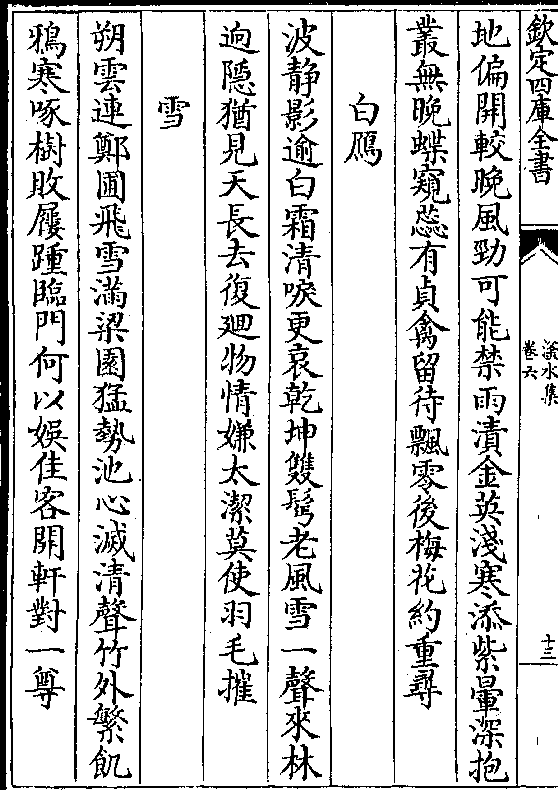 欽定四庫全書
滏水集
卷六
十三
地偏開較晚風勁可能禁雨漬金英淺寒添紫暈深抱
叢無晚蝶窺蕊有貞禽留待飄零後梅花約重尋
白鴈
波静影逾白霜清唳更哀乾坤雙鬢老風雪一聲來林
逈隠猶見天長去復廻物情嫌太潔莫使羽毛摧
雪
朔雲連鄭圃飛雪滿梁園猛勢池心滅清聲竹外繁飢
鴉寒啄樹敗屨踵臨門何以娱佳客開軒對一尊